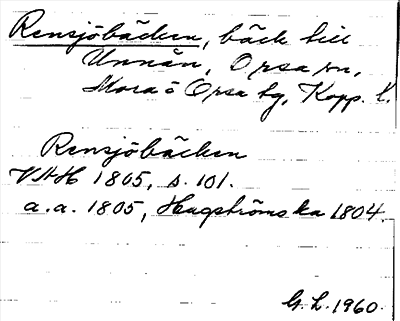 Rensjöbäcken, bäck till
Unnån, Orsa sn,
Mora o Orsa tg, Kopp. l.
Rensjöbäcken
VAH 1805, s. 101.
a.a. 1805, Hagströms ka 1804.
G. L. 1960.